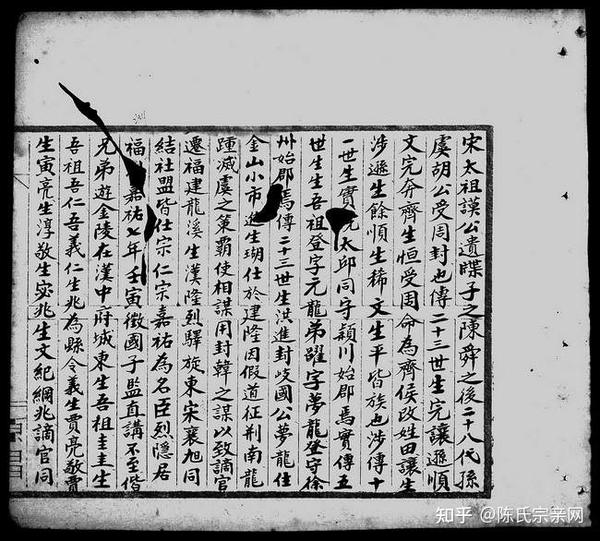 宋太祖謨公遺牒子之陳舜之後二十八代孫
虞胡公受周封也傳二十三世生完讓遜順
文完奔齊生恒受周命為齊侯改姓田讓生
涉遜生餘順生稀文生平皆族也涉傳十
一世生實元太邱同守潁川始郡焉實傳五
世生生吾祖登字元龍弟躍字夢龍登守徐
州始郡焉傳二十三世生洪進封歧國公夢龍仕
金山小市進生瑚仕於建隆因假道征荆南龍
踵滅虞之策霸使相謀用封韓之謀以致謫官
遷福建龍溪生漢隆烈驛旋東宋襄旭同
結社盟皆仕宗仁宗嘉祐為名臣烈隱居
福嘉祐七年壬寅徵國子監直講不至偕
兄弟遊金陵在漢中府城東生吾祖圭圭生
吾祖吾仁吾義仁生兆為縣令義生賈亮敬賈
生寅亮生淳敬生宓兆生文紀綱兆謫官同
知乎 @陈氏宗亲网